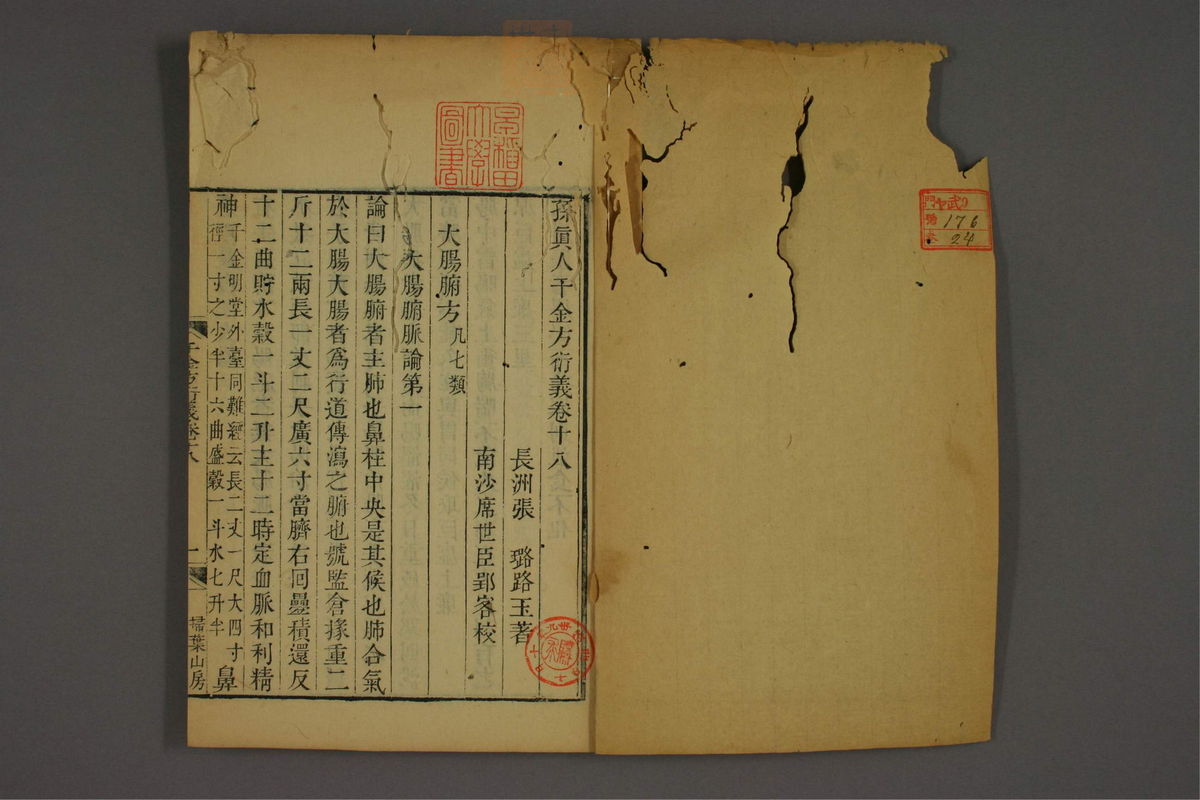 孫眞人千金方衍義卷十八
長洲張　璐路玉著
南沙席世臣郢客校
大腸腑方凡七類
大腸腑脈論第一
論曰大腸腑者主肺也鼻柱中央是其候也肺合氣
於大腸大腸者爲行道傳瀉之腑也號監倉掾重二
斤十二兩長一丈二尺廣六寸當臍右回疊積還反
十二曲貯水穀一斗二升主十二時定血脈和利精
神千金明堂外臺同難經云長二丈一尺大四寸
徑一寸之少半十六曲盛穀一斗水七升半鼻
千金方衍義卷十八
一
掃葉山房
早稻田大學圖書
176
24